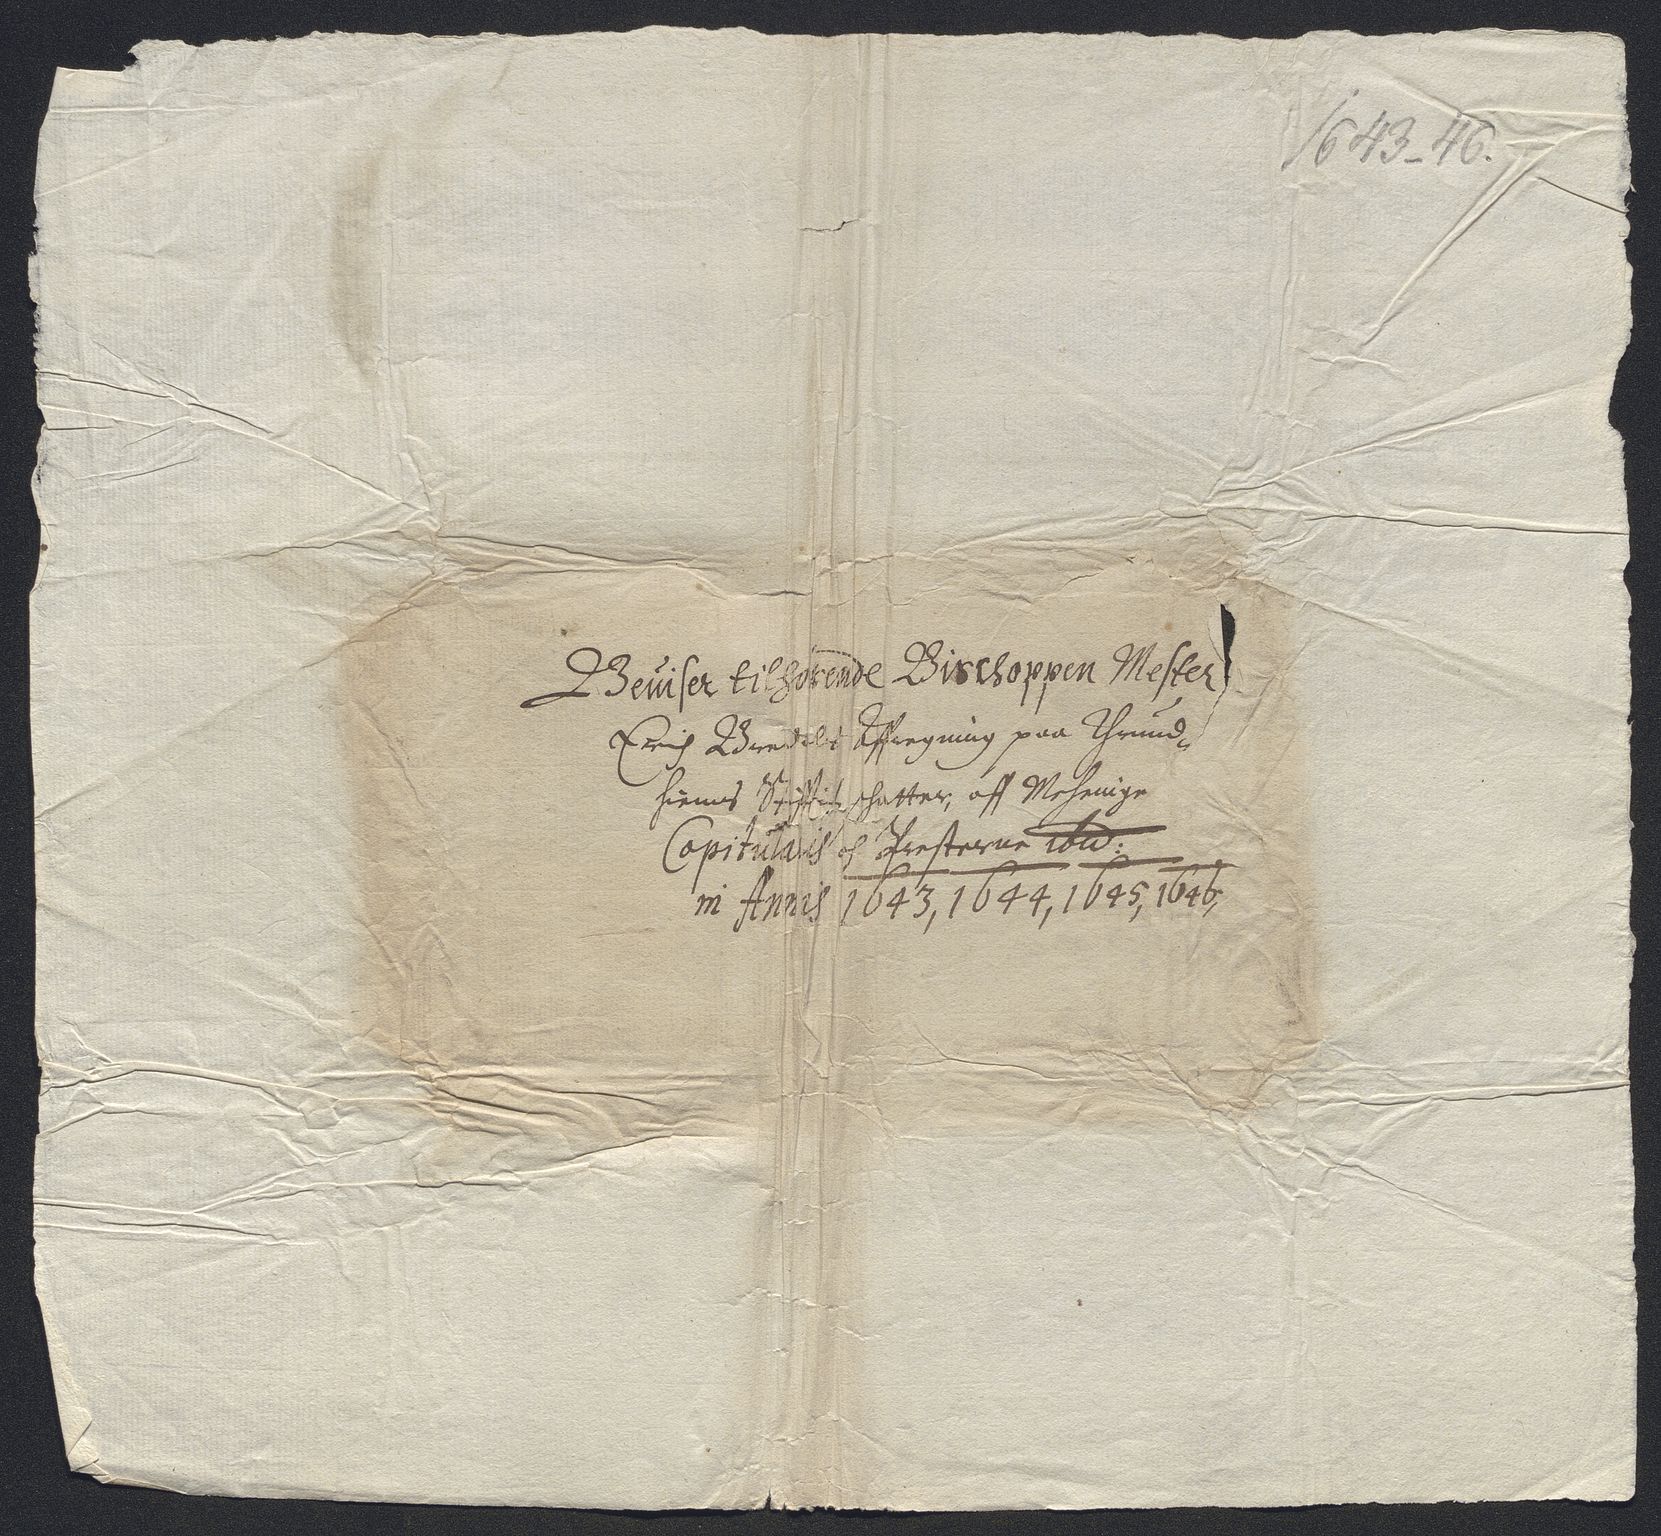 1643-46.
Beuiser tilhørende Bischoppen Mester
Erich Bredals Affregning paa Thrund„
hiems Stifftis schatter, aff Mehenige
Capitularis och Presterne ibid:
in Annis 1643, 1644, 1645, 1646,